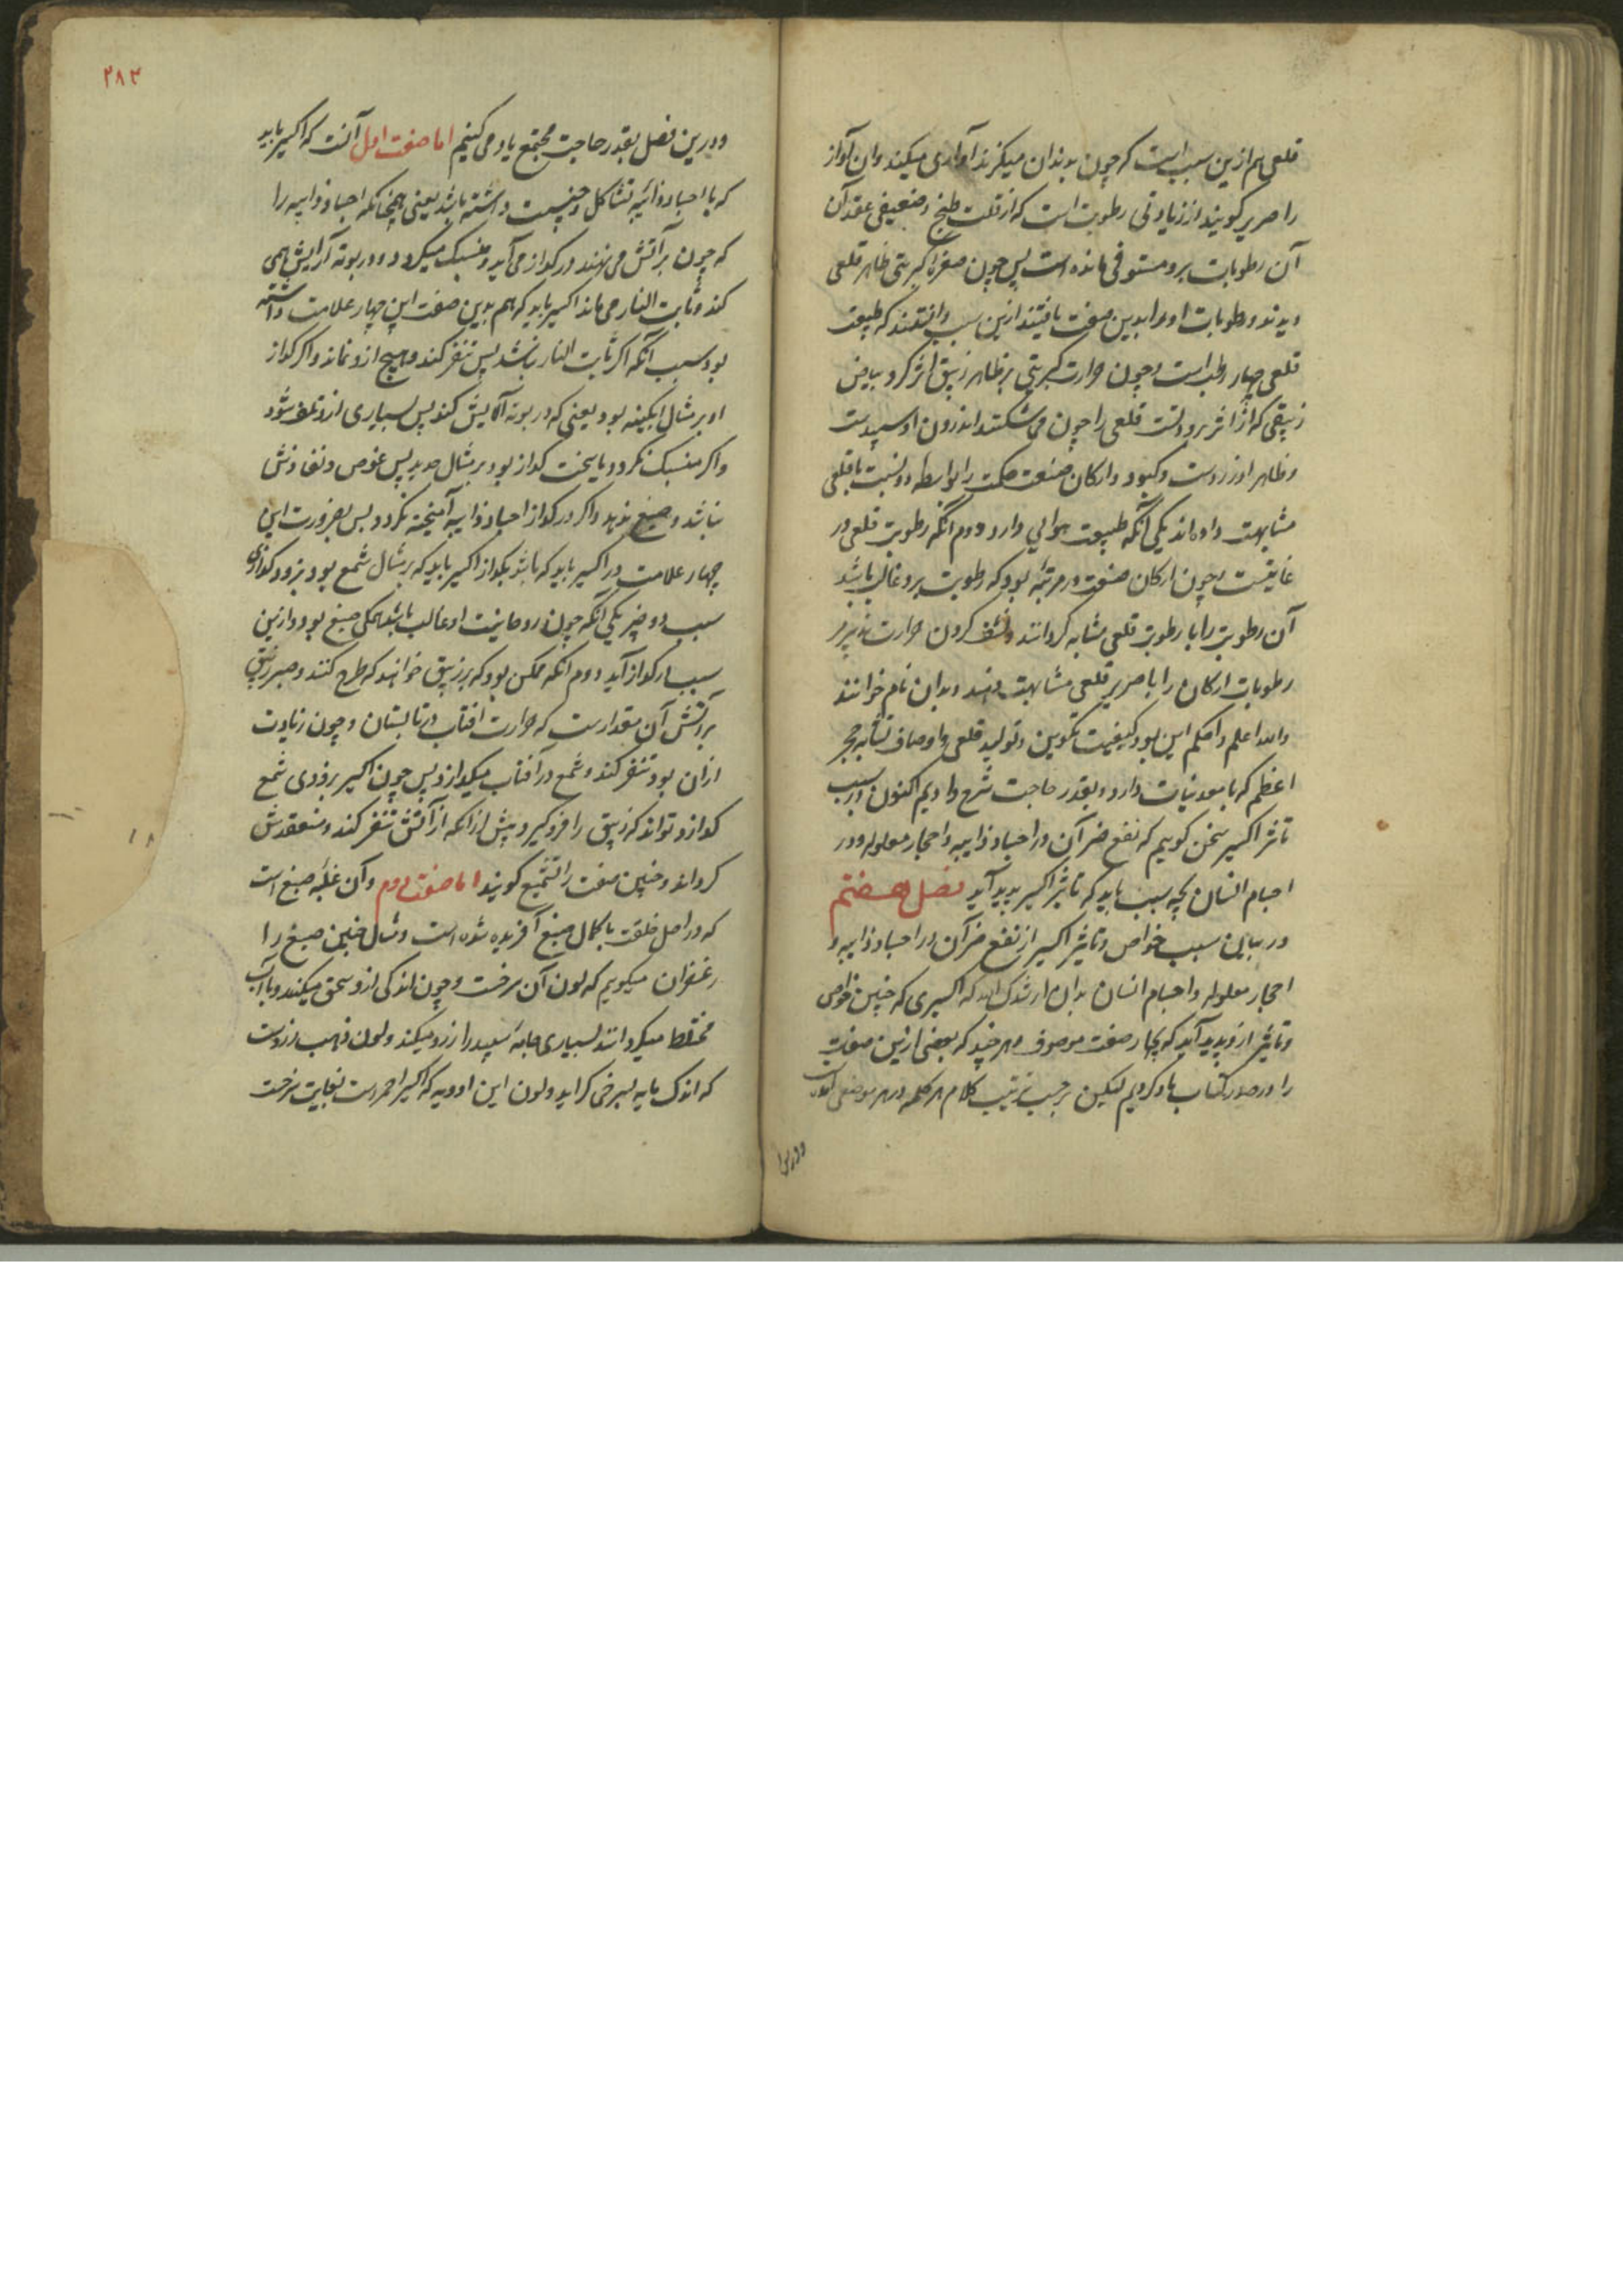 قلعی هم ازین سبب است که چون بدندان میگزند آوازی میکند و ان آواز
را صریر کویند از زیادتی رطوبت است که از قلت طبخ و ضعیفی عقد آن
آن رطوبات برو مستوفی مانده است پس چون صفرة کبریتی ظاهر قلعی
دیدند و رطوبات او را بدین صفت یافتند ازین سبب دانستند که طبیعت
قلعی چهار رطب است و چون حرارت کبریتی بر ظاهر زیبق اثر کرد بیاض
زیبقی که از اثر برودتست قلعی را چون می شکنند اندرون او سپیدست
و ظاهر او زردست و کبود و ارکان صنعت حکمت را بواسطه دو نسبت با قلعی
مشابهت داده اند یکی آنکه طبیعت هوایی دارد و دوم انکه رطوبت قلعی در
غایتست و چون ارکان صنعت در مرتبهٔ بود که رطوبت برو غالب باشد
آن رطوبت را با رطوبت قلعی مشابه کردانند و نشف کردن حرارت پذیرد
رطوبات ارکان را با صریر قلعی مشابهت دهند و بدان نام خوانند
والله اعلم و احکم این بود کیفیت تکوین و تولید قلعی و اوصاف تشابه حجر
اعظم که با معدنیات دارد و بقدر حاجت شرح دادیم اکنون در سبب
تاثر اکسیر سخن کوییم که نفع ضر آن در اجساد ذایبه و احجار معلوله و در
اجسام انسان بچه سبب باید که تاثیر اکسیر پدید آید فصل هفتم
در بیان سبب خواص و تاثیر اکسیر از نفع ضر آن در اجساد ذایبه و
احجار معلوله و اجسام انسان بدان ارشدک الله که اکسیری که چنین خواص
و تاثیر ازو پدید آید که بچهار صفت موصوف هر چند که بعضی ازین صفت
را در صدر کتاب یاد کردیم لیکن بر حسب ترتیب کلام هر کلمه در هر موضعی
و درین
۲۸۳
و درین فصل بقدر حاجت مجتمع یاد می کنیم اما صفت اول آنست که اکسیر باید
که با اجساد ذائبه تشاکل و جنسیت داشته باشد یعنی همچنانکه اجساد ذایبه را
که چون بر آتش می نهند در کداز می آید و منسبک میکردد و در بوته آرایش همی
کند و ثابت النار می ماند اکسیر باید که هم بدین صفت این چهار علامت داشته
بود سبب آنکه اکر ثابت النار نباشد پس تنفر کند و هیچ ازو نماند و اکر کداز
او بر مثال ابکینه بود یعنی که در بوته آلایش کند پس بسیاری ازو تلف شود
و اکر منسبک نکردد یا سخت کداز بود بر مثال حدید پس غوص و نفاذش
نباشد و صبغ ندهد و اکر در کداز اجساد ذایبه آمیخته نکردد پس بضرورت این
چهار علامت در اکسیر باید که باشد بکداز اکسیر باید که بر مثال شمع بود بزود کدازی
سبب دو چیز یکی آنکه چون روحانیت او غالب باشد همکی صبغ بود و ازین
سبب در کداز آید دوم انکه ممکن بود که بر زیبق خواهند که طرح کنند و صبر زیبق
بر آتش آن مقدارست که حرارت افتاب در تابستان و چون زیادت
ازان بود تنفر کند و شمع در آفتاب میکدازد پس چون اکسیر بزودی شمع
کدازد تواند که زیبق را فرو کیرد پیش از آنکه از آتش تنفر کند و منعقدش
کرداند و چنین صفت را تشمیع کویند اما صفت دوم و آن غلبهٔ صبغ است
که در اصل خلقت با کمال صبغ آفریده شده است و مثال چنین صبغ را
زعفران میکوییم که لون آن سرخست و چون اندکی ازو سحق میکنند و با آب
مختلط میکردانند بسیاری جامهٔ سپید را زرد میکند و لون ذهب زردست
که اندک مایه بسرخی کراید و لون این ادویه که اکسیر احمرست بغایت سرخست